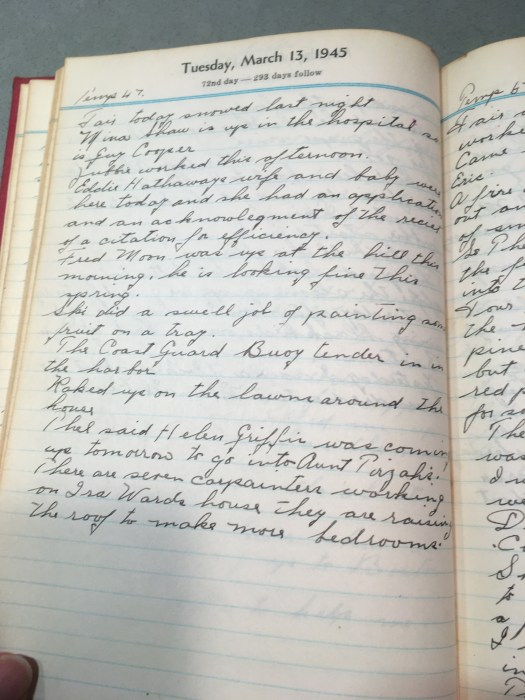 Tuesday, March 13, 1945
72nd day — 293 days follow
Temp 47.
Fair today snowed last night
Mina Shaw is up in the hospital so
is Guy Cooper
worked this afternoon.
Eddie Hathaways wife and baby were
here today and she had an application
and an acknowlegment of the
of a citation for efficiency.
Fred Moon was up at the hill this
morning. he is looking fine this
spring.
Ski did a swell job of painting some
fruit on a tray.
The Coast Guard Buoy tender in in
the harbor
Raked up on the lawns around the
house
Phel said Helen Griffin was coming
up tomorrow to go into Aunt Pirzahs.
There are seven carpainters working
on Ira Wards house they are raising
the roof to make more bedrooms.
Temp 6
Fair
work
Came
Eric.
A fire
out an
of sm
the f
into t
Four
the
pine
but
red p
for s
The
was
I